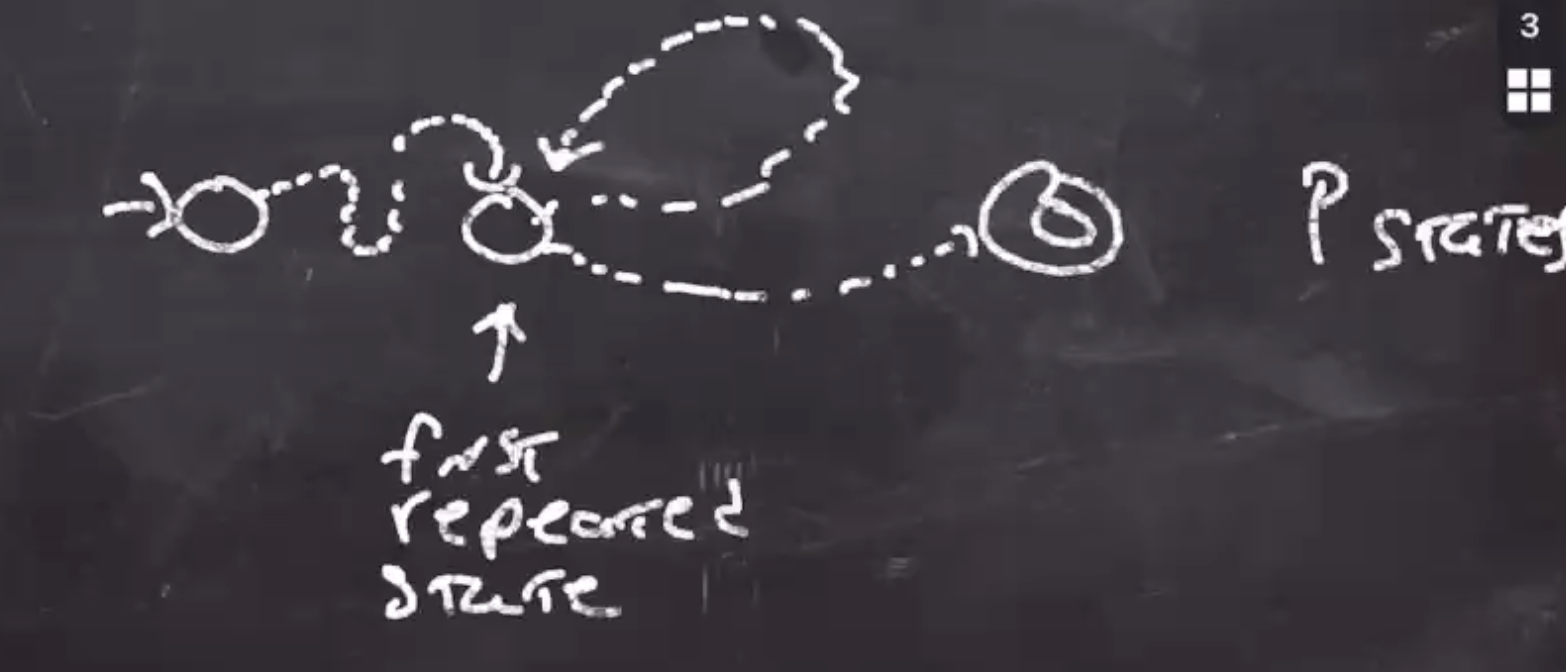 3
P states
first
repeated
state